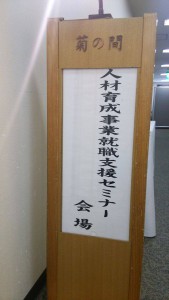 菊の間
人材育成事業就職支援セミナー
会場